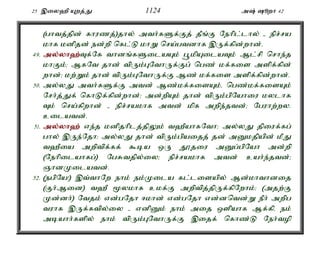 25 இலைஹி யுறத்து 1124 அஷ் ஷூறா 42
(பாவத்தின் காரணத்)தால் அவர்களுக்குத் தீங்கு நேரிட்டால் - நிச்சய
மாக மனிதன் நன்றி கெட்டு மாறு செய்பவனாக இருக்கின்றான்.
49. அல்லாஹ்வுக்கே வானங்களுடையவும் பூமியுடையவும் ஆட்சி சொந்த
மாகும்; ஆகவே தான் விரும்புவோருக்குப் பெண் மக்களை அளிக்கின்
றான்; மற்றும் தான் விரும்புவோருக்கு ஆண் மக்களை அளிக்கின்றான்.
50. அல்லது அவர்களுக்கு அவன் ஆண்மக்களையும், பெண்மக்களையும்
சேர்த்துக் கொடுக்கின்றான்; அன்றியும் தான் விரும்பியோரை மலடாக
வும் செய்கிறான் - நிச்சயமாக அவன் மிக அறிந்தவன்; பேராற்றல்
உடையவன்.
51. அல்லாஹ் எந்த மனிதரிடத்திலும் வஹீயாகவோ; அல்லது திரைக்கப்
பால் இருந்தோ; அல்லது தான் விரும்பியதைத் தன் அனுமதியின் மீது
வஹீயை அறிவிக்கக் கூடிய ஒரு தூதரை அனுப்பியோ அன்றி
(நேரிடையாகப்) பேசுவதில்லை; நிச்சயமாக அவன் உயர்ந்தவன்;
ஞானமுடையவன்.
52. (நபியே!) இவ்வாறே நாம் நம்முடைய கட்டளையில் ஆன்மாவானதை
(குர்ஆனை) வஹீ மூலமாக உமக்கு அறிவித்திருக்கிறோம்; (அதற்கு
முன்னர்) வேதம் என்பதோ ஈமான் என்பதோ என்னவென்று நீர் அறிப
வராக இருக்கவில்லை - எனினும் நாம் அதை ஒளியாக ஆக்கி, நம்
அடியார்களில் நாம் விரும்புவோருக்கு இதைக் கொண்டு நேர்வழி